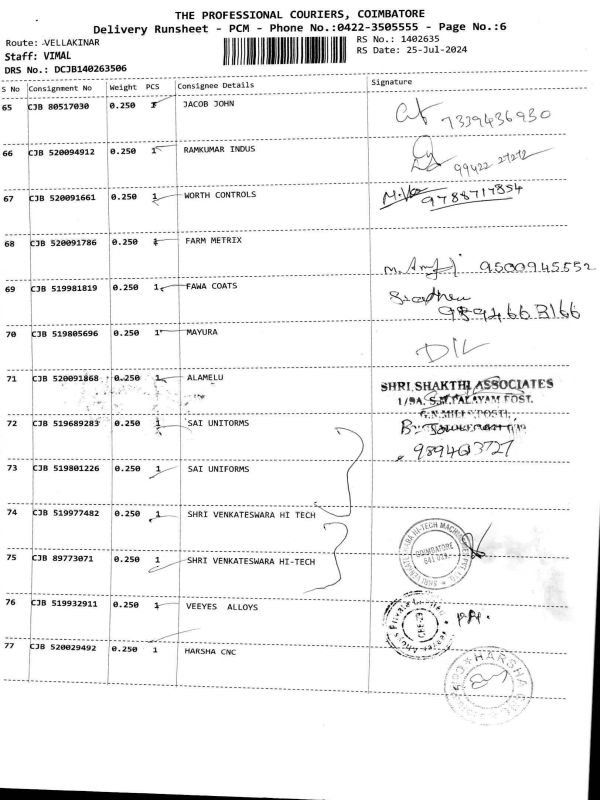 THE PROFESSIONAL COURIERS, COIMBATORE
Delivery Runsheet - PCM - Phone No.:0422-3505555 - Page No.:6
Route: -VELLAKINAR
RS No.: 1402635
Staff: VIMAL
RS Date: 25-Jul-2024
DRS No.: DCJB140263506
S No Consignment No Weight PCS Consignee Details Signature
65 CJB 80517030 0.250 1 JACOB JOHN
7339436930
66 CJB 520094912 0.250 1 RAMKUMAR INDUS
99422 27272
67 CJB 520091661 0.250 1 WORTH CONTROLS
9788717854
68 CJB 520091786 0.250 1 FARM METRIX
9500945552
69 CJB 519981819 0.250 1 FAWA COATS
9894663166
70 CJB 519805696 0.250 1 MAYURA
D/L
71 CJB 520091868 0.250 1 ALAMELU
SHRI SHAKTHI ASSOCIATES
1/9A, S.M.PALAYAM POST.
G.N.MILLS POST,
72 CJB 519689283 0.250 1 SAI UNITORMS
73 CJB 519801226 0.250 1 SAI UNIFORMS
74 CJB 519977482 0.250 1 SHRI VENKATESWARA HI TECH
75 CJB 89773071 0.250 1 SHRI VENKATESWARA HI-TECH
COIMBATORE
76 CJB 519932911 0.250 1 VEEYES ALLOYS
CBE-29
77 CJB 520029492 0.250 1 HARSHA CNC
HARSHA